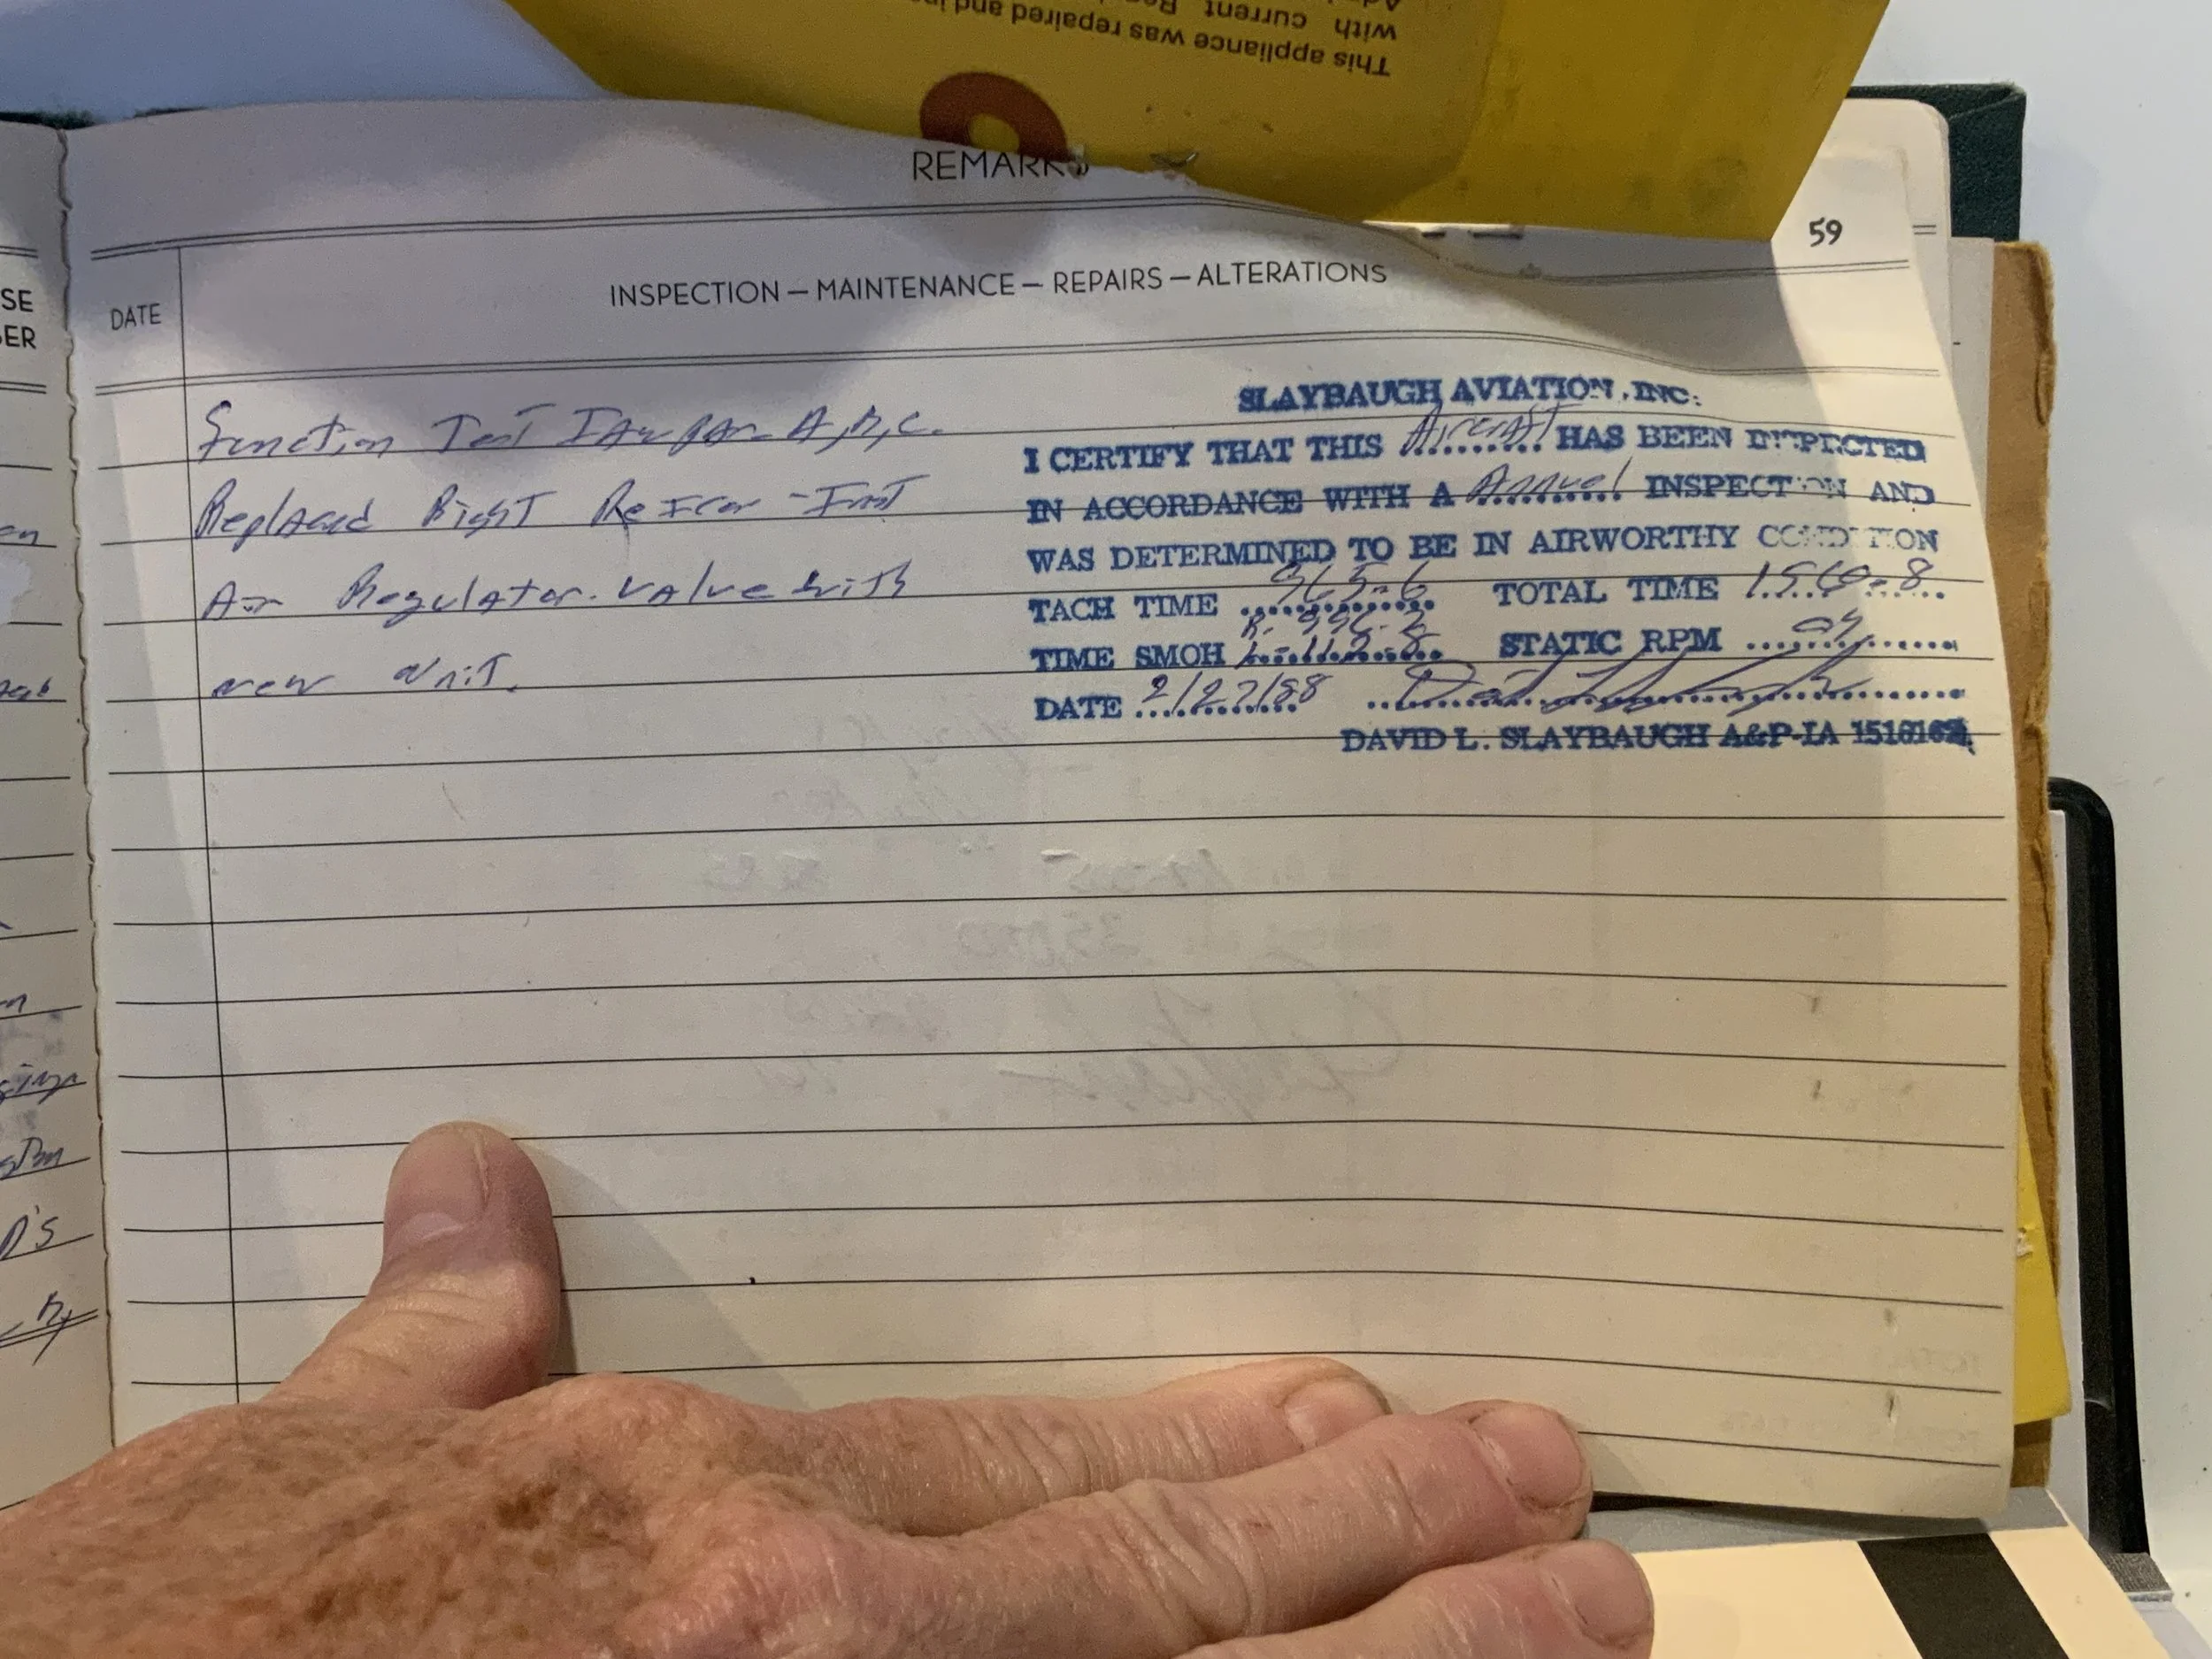 This appliance was repaired and in
with current Re
REMARKS
59
SE
BER
DATE
INSPECTION — MAINTENANCE — REPAIRS — ALTERATIONS
Function Test Para A,B,C.
Replaced Right DeIcer - Inst
Air Regulator. valve with
new unit.
SLAYBAUGH AVIATION, INC.
I CERTIFY THAT THIS Aircraft HAS BEEN INSPECTED
IN ACCORDANCE WITH A Annual INSPECTION AND
WAS DETERMINED TO BE IN AIRWORTHY CONDITION
TACH TIME 965.6 TOTAL TIME 1560.8
TIME SMOH STATIC RPM
DATE 2/27/88
DAVID L. SLAYBAUGH A&P-IA
en
D'S